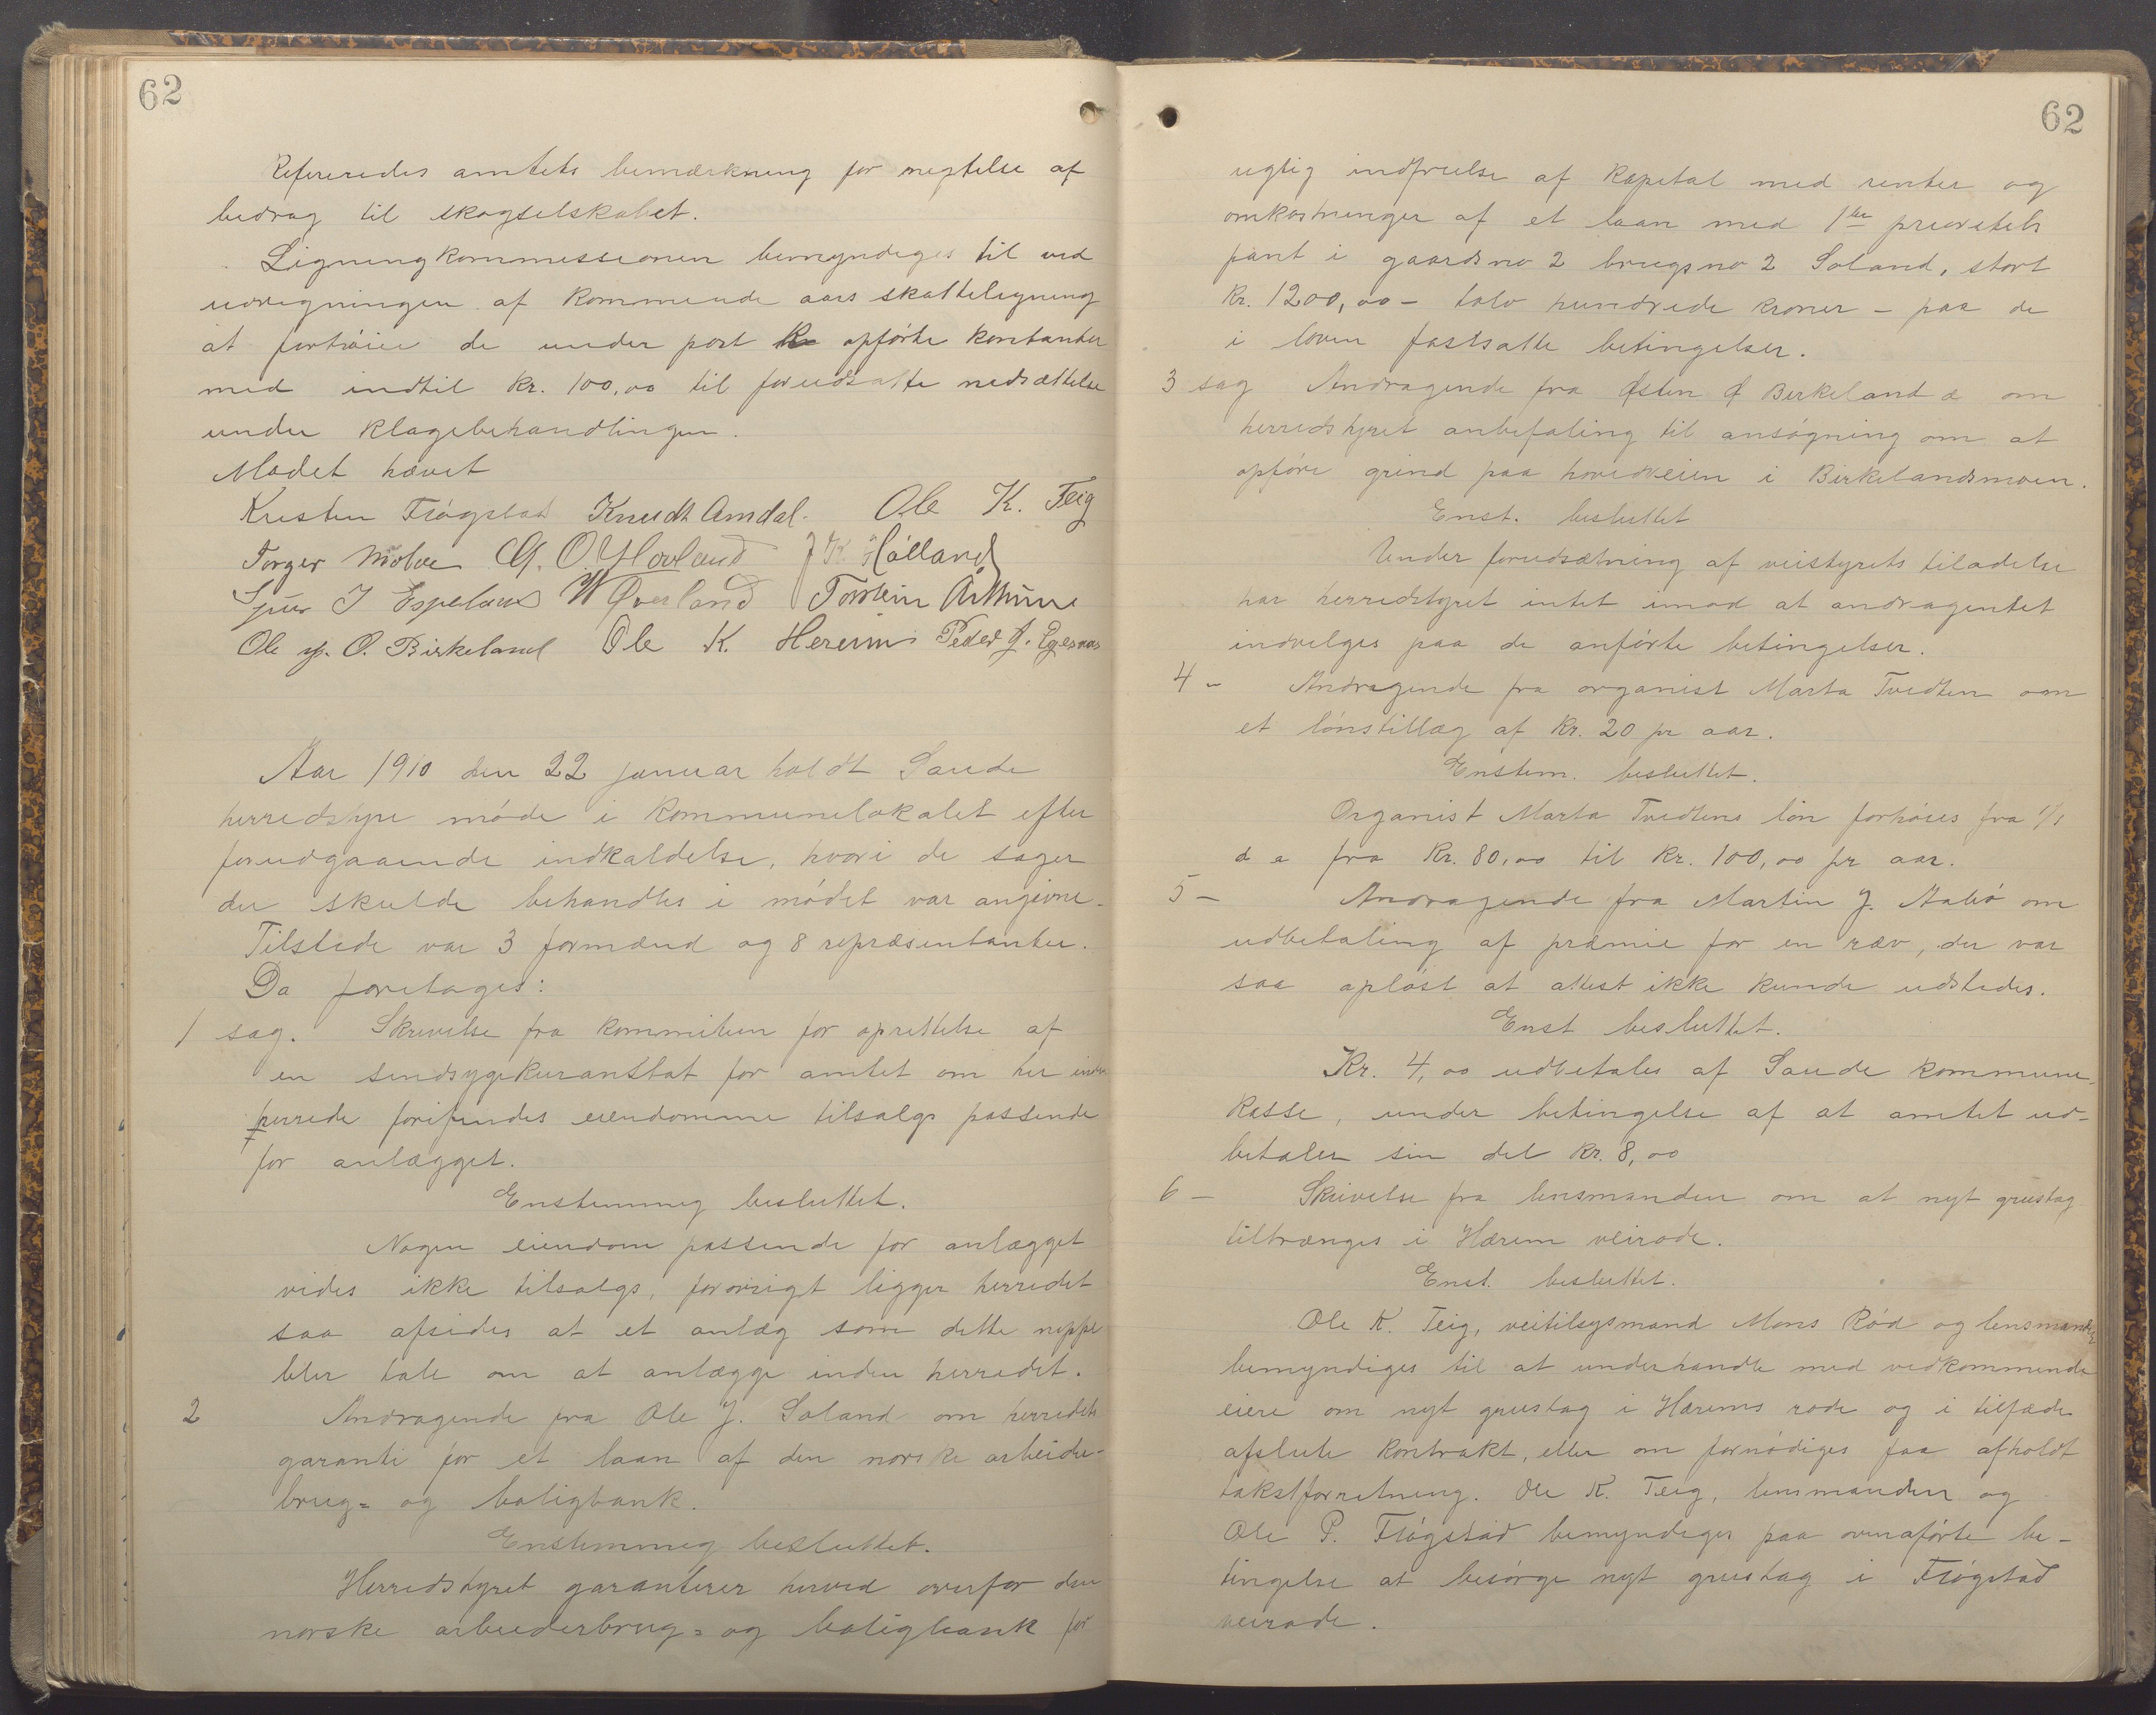 62
Refereredes amtets bemærkning for negtelse af
bedrag til skogselskabet.
Ligningkommissionen bemyndiges til ved
udregningen af kommende aars skatteligning
at forhøie de under post opførte kontanter
med indtil kr. 100,00 til forudsatte nedsættelse
under klagebehandlingen.
Mødet hævet
Kristen Frøgstad Knudt Omdal. Ole K. Teig
Torger G. O. Hovland J K Hålland
Sjur J Espeland W Øverland Torstein Århune
Ole O. Birkeland Ole K. Hereim Peder J. Egenæs
Aar 1910 den 22 januar holdt Saude
herredstyre møde i kommunelokalet efter
forudgaaende indkaldelse, hvori de sager
der skulde behandles i mødet var angivne.
Tilstede var 3 formænd og 8 repræsentanter.
Da foretages:
1 sag. Skrivelse fra kommiteen for oprettelse af
en sindsygekuranstat for amtet om her inden
herrede forifindes eiendomme tilsalgs passende
for anlægget.
Enstemmig besluttet.
Nogen eiendom passende for anlægget
vides ikke tilsalgs, forøvrigt ligger herredet
saa afsides at et anlæg som dette neppe
bler tale om at anlægge inden herredet.
2 Andragende fra Ole J. Soland om herredets
garanti for et laan af den norske arbeider-
brug= og boligbank.
Enstemmig besluttet.
Herredstyret garanterer herved overfor den
norske arbeiderbrug= og boligbank for
62
rigtig indfrielse af kapital med renter og
omkostninger af et laan med 1ste prioritets
pant i gaardsno 2 brugsno 2 Soland, stort
kr. 1200,00 – tolv hundrede kroner – paa de
i loven fastsatte betingelser.
3 sag Andragende fra Østen Ø Birkeland om
herredstyret anbefaling til ansøgning om at
opføre grind paa hovedveien i Birkelandsmoen.
Enst. besluttet
Under forudsætning af veistyrets tiladelse
har herredstyret intet imod at andragentet
indvelges paa de anførte betingelser.
4 – Andragende fra organist Marta Tvedten om
et lønstillæg af kr. 20 pr aar.
Enstem. besluttet.
Organist Marta Tvedtens løn forhøies fra 1/1
d a fra kr. 80,00 til kr. 100,00 pr aar.
5 – Andragende fra Martin J. Aabø om
udbetaling af præmie for en ræv, der var
saa opløst at attest ikke kunde udstedes.
Enst besluttet.
Kr. 4,00 udbetales af Saude kommune-
kasse, under betingelse af at amtet ud-
betaler sin del kr. 8,00
6 – Skrivelse fra lensmanden om at nyt grustag
tiltrænges i Hærem veirode.
Enst. besluttet.
Ole K. Teig, veitilsysmand Mons Rød og lensmanden
bemyndiges til at underhandle med vedkommende
eiere om nyt grustag i Hærems rode og i tilfæde
afslute kontrakt, eller om fornødiges faa afholdt
takstforretning. Ole K. Teig, lensmanden og
Ole P. Frøgstad bemyndiges paa ovenaførte be-
tingelse at besørge nyt grustag i Frøgstad
veirode.